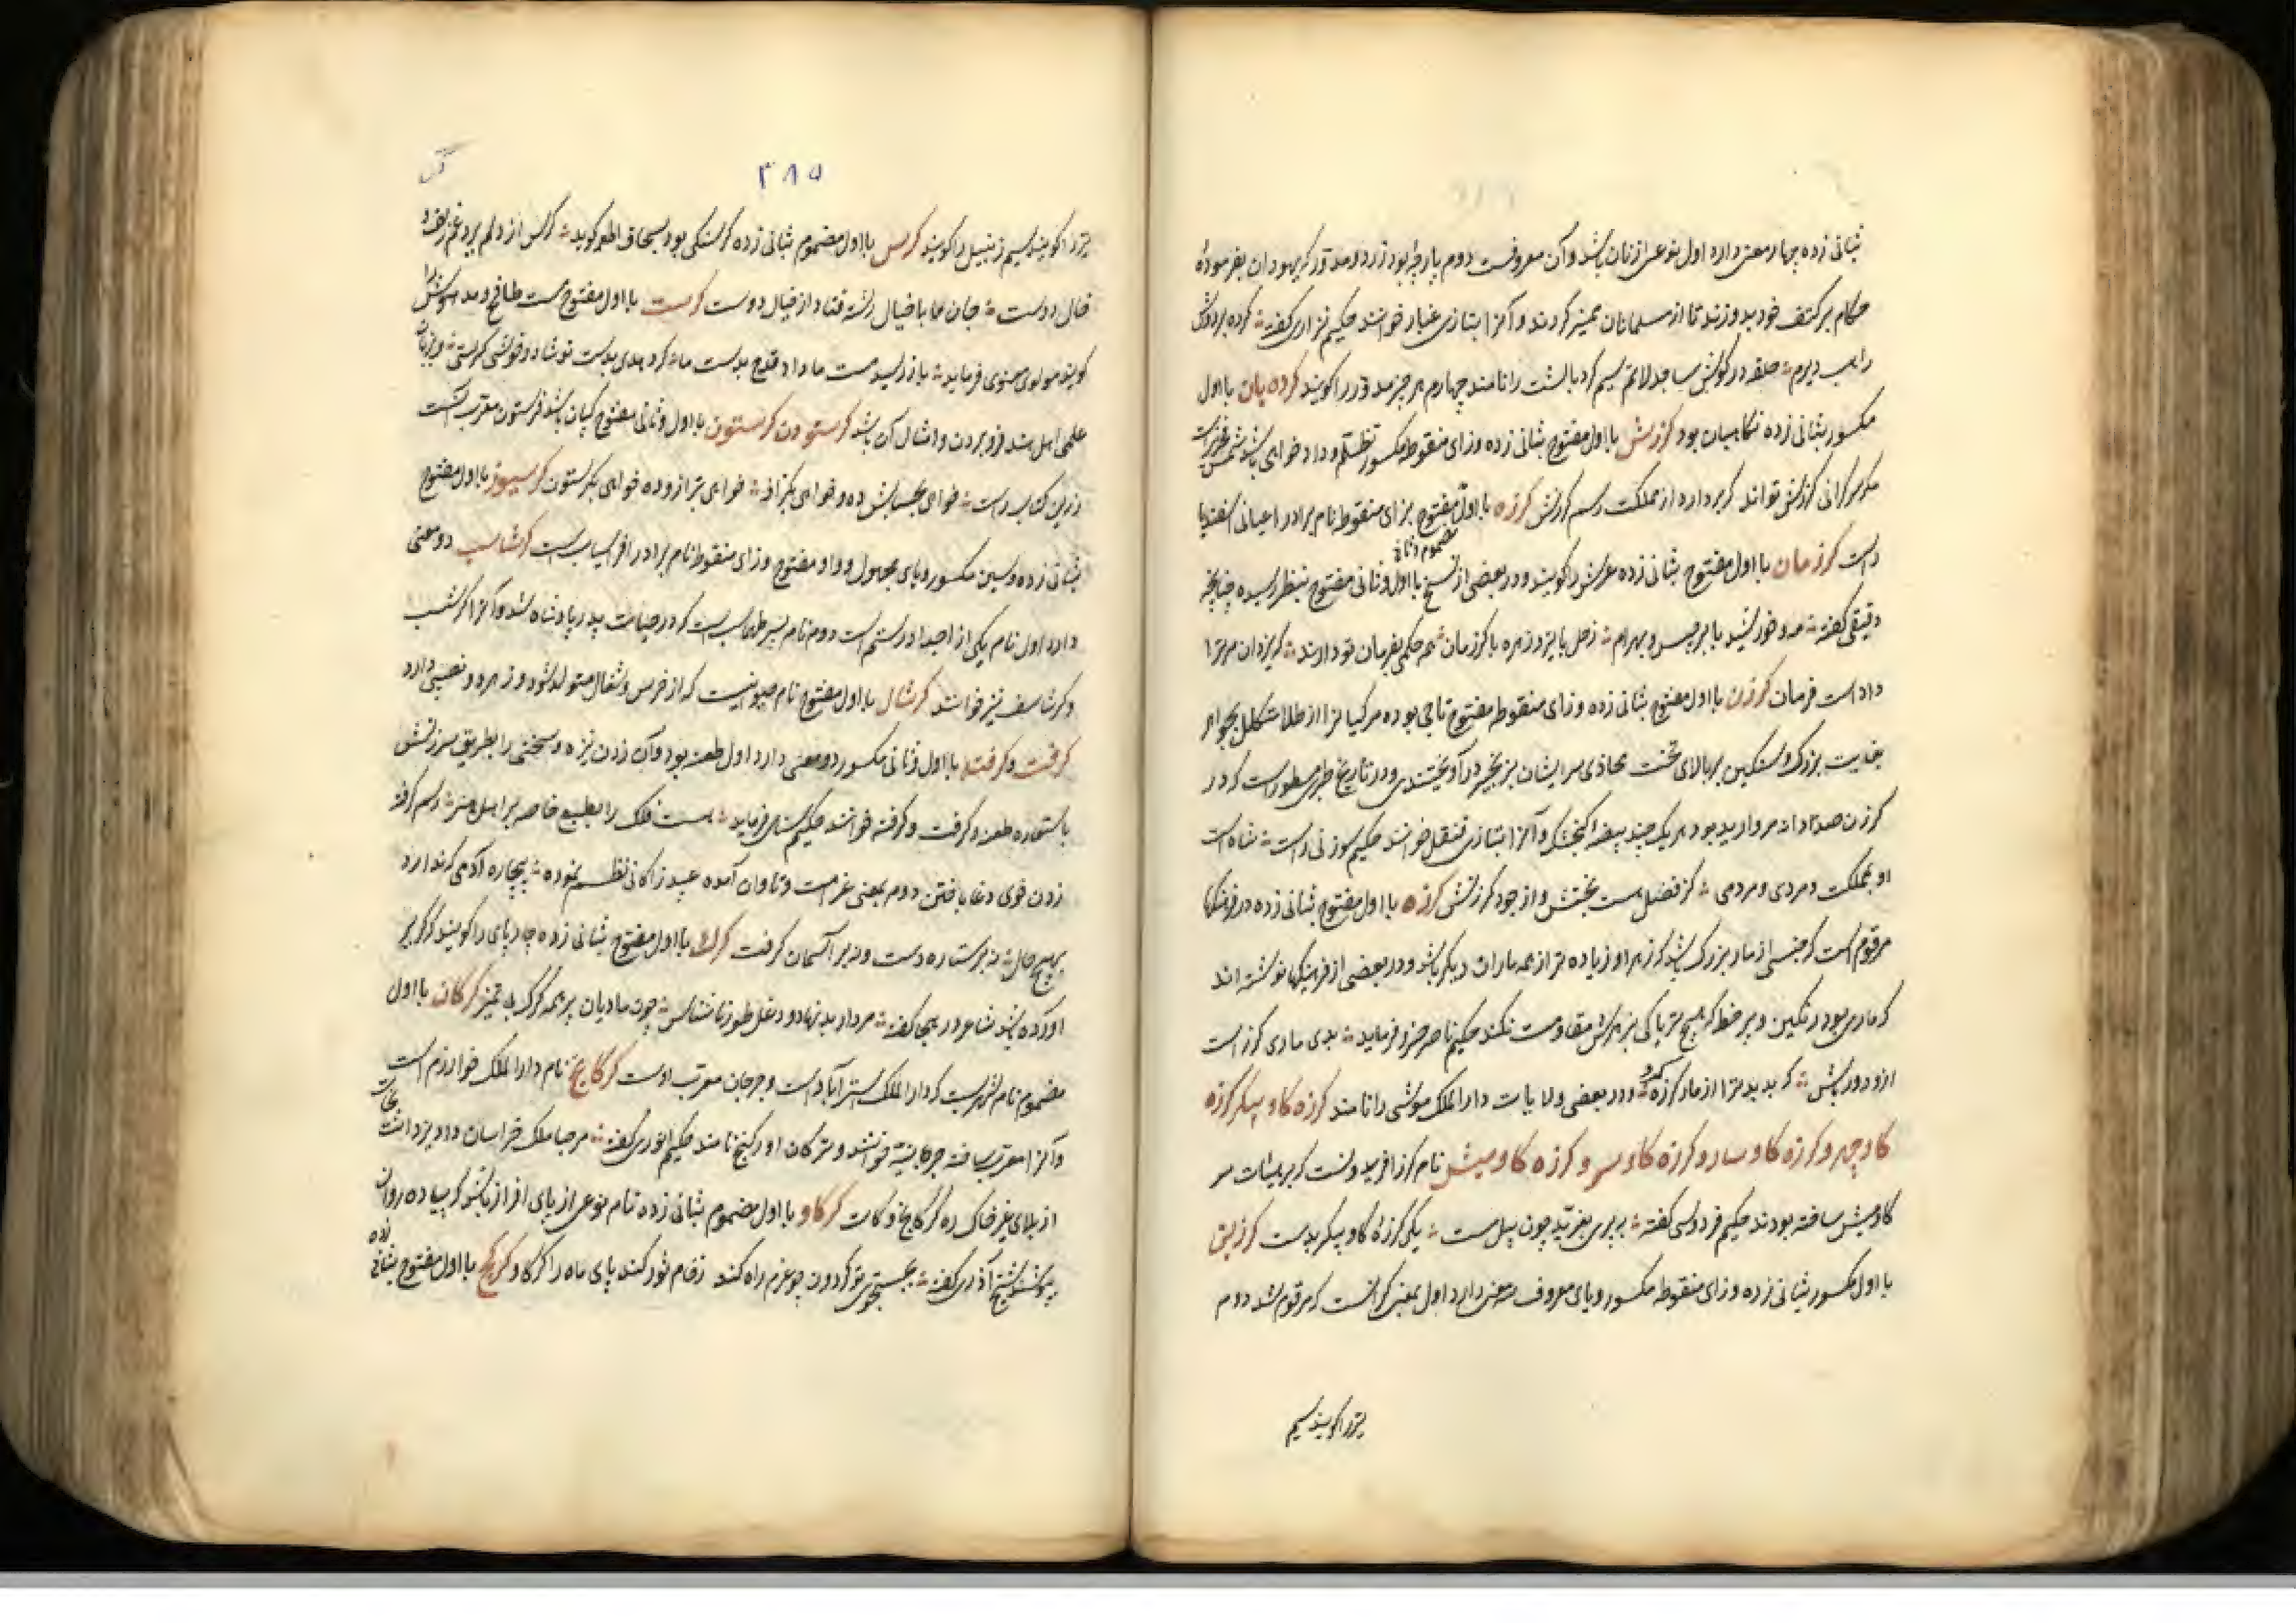 بثانی زده چهار معنی دارد اول نوعی از نان باشد و آن معروفست دوم پارچهٔ بود زرد و مدور که یهودان بفرمودهٔ
حکام بر کتف خود بدوزند تا از مسلمانان متمیز گردند و آنرا بتازی غیار خوانند حکیم نزاری گفته کرده بر دوش
راهب دیرم حلقه در گوش ساجد لاتم سیم گرد بالشت را نامند چهارم هر چیز مدور را گویند گرده بان با اول
مکسور بثانی زده نگاهبان بود گرزش با اول مفتوح بثانی زده وزای منقوطه مکسور تظلم و داد خواهی باشد شمس فخری راست
گرزش تواند که بردارد از مملکت رسم گرزش گرزه با اول مفتوح بزای منقوطه نام برادر اعیانی اسفندیار
است گرزمان با اول مفتوح بثانی زده عرش را گویند و در بعضی از نسخ با اول مضموم و ثانی مفتوح بنظر رسیده چنانچه
دقیقی گفته مه و خورشید با برجیس و بهرام زحل با تیر و زهره با گرزمان همه حکمی بفرمان تو دارند که یزدان مر ترا
داداست فرمان گرزن با اول مفتوح بثانی زده و زای منقوطه مفتوح تاجی بوده مر کیانرا از طلا مکلل بجواهر
بغایت بزرگ و سنگین بر بالای تخت محاذی سر ایشان بزنجیر در آویختندی و در تاریخ طبری مسطور است که در
گرزن صد دانه مروارید بود هر یک چند بیضه گنجشک و آنرا بتازی قنقل خوانند حکیم سوزنی راست شاه است
او بمملکت و مردی و مردمی کز فضل هست بختش و از جود گرزنش گرزه با اول مفتوح بثانی زده در فرهنگها
مرقوم است که جنسی از مار بزرگ باشد که زهر او زیاده تر از همه ماران دیگر باشد و در بعضی از فرهنگها نوشته اند
که ماری بود رنگین و پر خط که هیچ تریاکی بزهرش مقاومت نکند حکیم ناصر خسرو فرماید بدی ماری گرزه است
ازو دور باش که بد بدتر از مار گرزه گزد و در بعضی ولایات دارالملک موشی را نامند گرزه گاو پیکر گرزه
گاو چهر و گرزه گاو سار و گرزه گاو سر و گرزه گاو میش نام گرز افریدونست که بر هیئات سر
گاومیش ساخته بودند حکیم فردوسی گفته بیامد بغرید چون پیل مست یکی گرزهٔ گاو پیکر بدست گرزین
با اول مکسور بثانی زده و زای منقوطه مکسور و یای معروف سه معنی دارد اول بمعنی گزیدنست که مرقوم شد دوم
تیر را گویند سیم
۳۸۵
گ
تیر را گویند سیم زنبیل را گویند گرس با اول مضموم بثانی زده گرسنگی بود بسحاق اطعمه گوید گرس از دلم برد غم زلف و
خال دوست جان ما با خیال رشته فتاد از خیال دوست گرست با اول مفتوح مست طافح و مدهوش را
گویند مولوی معنوی فرماید باز رسید مست ما داد قدح بدست ما گر دهدی بدست تو شاد و خوشی گرستی و بزبان
علمی اهل هند فرو بردن و امثال آن باشد گرستودن گرستون با اول و ثانی مفتوح کپان باشد قرستون معرب آنست
زرین کتاب راست خواهی بحسابش ده و خواهی بگزافه خواهی بترازو ده خواهی بگرستون گرسیوز با اول مفتوح
بثانی زده و سین مکسور و یای مجهول و واو مفتوح و زای منقوطه نام برادر افراسیاب است گرشاسب دو معنی
دارد اول نام یکی از اجداد رستم است دوم نام پسر طهماسب است که در حیات پدر پادشاه شد و آنرا گرشسب
و گرشاسف نیز خوانند گرشال با اول مفتوح نام حیوانیست که از خرس و شغال متولد شود و زهره و نصیبی دارد
گرفت و گرفته با اول و ثانی مکسور دو معنی دارد اول طعنه بود و آن زدن نیزه و سخنی را بطریق سرزنش
باستعاره طعنه و گرفت و گرفته خوانند حکیم سنائی فرماید هست فلک را بطبع خاصه بر اهل هنر رسم گرفته
زدن خوی دغا باختن دوم بمعنی غرامت و تاوان آمده عبید زاکانی نظم نموده بیچاره آدمی که ندارد
بهیچ حال نه بر ستاره دست و نه بر آسمان گرفت گرگ با اول مفتوح بثانی زده چارپای را گویند که گر بر
آورده باشد شاعر در هجا گفته مردار بد نهاد و دغل طور ناشناس چون مادیان پر همه گرگ بی تمیز گرگان با اول
مضموم نام شهریست که دارالملک استرآباد است و جرجان معرب اوست گرگانج نام دارالملک خوارزم است
و آنرا معرب ساخته جرجانیه خوانند و ترکان اورگنج نامند حکیم انوری گفته مرحبا ملک خراسان داد یزدانت نجات
از بلای غیر خاک ره گرگانج و کات گرگاو با اول مضموم بثانی زده نام نوعی از پای افزار باشد که پیاده روان
پوشند شیخ آذری گفته بجستجوی تو گردون چو عزم راه کند زقام خور کند پای ماه را گرگاو گرگج با اول مفتوح بثانی زده